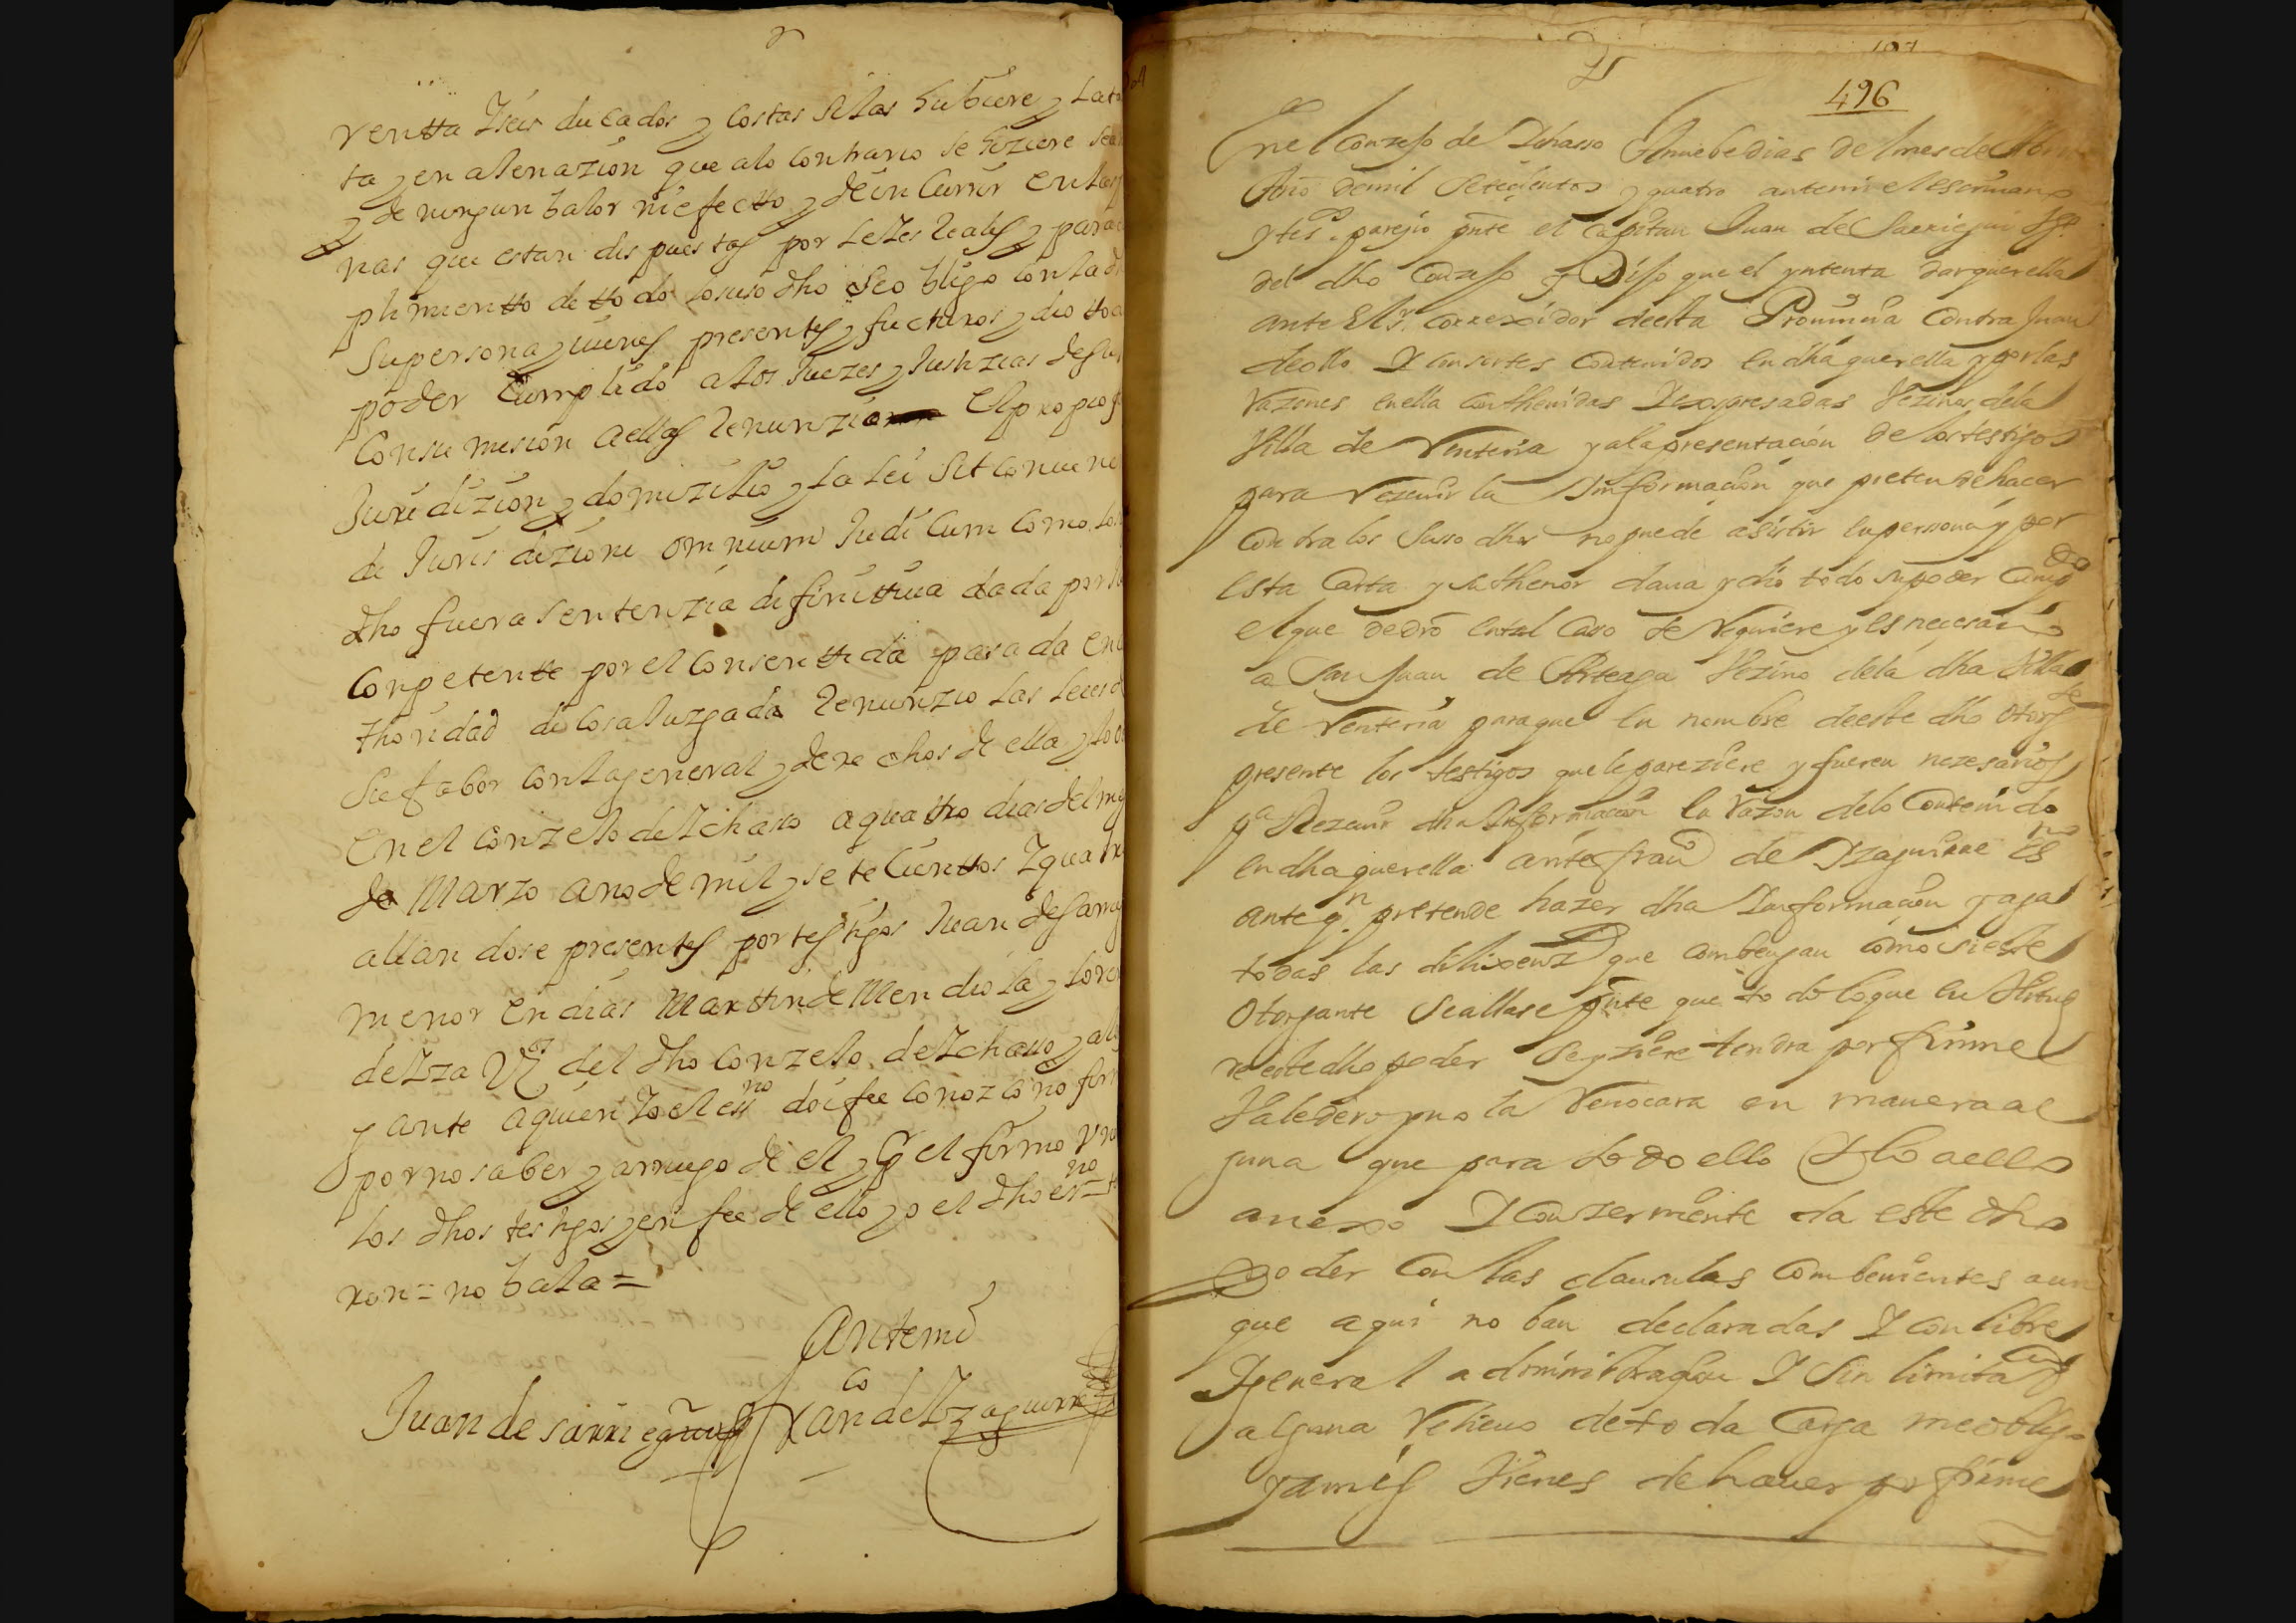 renta Iseis ducados y costas si las hubiere y
ta y enatenazion que alo contrario se hiziere
y de ningun balor ni efectto y de in Currir en
nas que estan dispuesttas por leies Reales y para
plimientto de ttodo losuso dho se obligo con
su persona y vienes presentes y fucturos y dio tto
poder Cumplido alos Juezes y Justizias de
Consumision aellas Renunzio El propio
Juridizion y domizilio y la lei sit conuene
de Jurisdizioni omnium Judicum como
dho fuera sentenzia difinittiua dada por
Conpetentte por el consenttida pasada en
thoridad de cosa Juzgada Renunzio las leies
su fabor con la general y derechos de ella y
En el conzelo de Ichasso a quattro dias del
de Marzo ano de mil y sete Cienttos I quatro
allandose presentes por testigos Juan de
menor en dias Martin de Mendiola y
de Iza Vz del dho conzelo de Ichasso y
y ante a quien Io el essno doi fee conozco no
por no saber y a rruego de el y por el firmo
los dhos testigos y en fee de ello yo el dho esno
ron = no bala =
Ante mi
Juan de Sarriegui Franco de Izaguirre
107
496
En el Conzejo de Ichasso A nuebe dias del mes de
Año de mil Setecientos y quatro ante mi el escriuano
y tess. parezio pnte el Capitan Juan de Sarriegui
del dho Conzejo y Dijo que el yntenta dar querella
ante El Sr. Correxidor de esta Prouinzia Contra Juan
de ollo I consortes Contenidos en dha querella y por las
Razones en ella Conthenidas I expresadas Vezinos de la
Villa de Renteria y a la presentacion de los testigos
para Rezeuir la Informacion que pretende hacer
Contra los Suso dhos no puede asistir en perssona y por
esta Carta y su thenor daua y dio todo su poder Cumpdo
el que de dro en tal Caso se Requiere y es necesario
a San Juan de Arteaga Vezino de la dha Villa
de Renteria para que en nombre de este dho otorgte
presente los testigos que le pareziere y fueren nezesarios
pa Rezeuir dha Informacion en Razon de lo Contenido
en dha querella ante Franco de Izaguirre Esno
ante qn pretende hazer dha Informacion y aga
todas las dilixenzas que combengan como si este
Otorgante se allase pnte que todo lo que en Virtud
de este dho poder se yziere tendra por firme
Valedero y no la Reuocara en manera al
guna que para todo ello I lo a ello
anexo I Conzerniente da este dho
poder Con las clausulas Combenientes aun
que aqui no ban declaradas I con libre
I general administrazion I Sin limitazon
alguna Relieuo de toda Carga me obligo
y a mis Vienes de hauer por firme